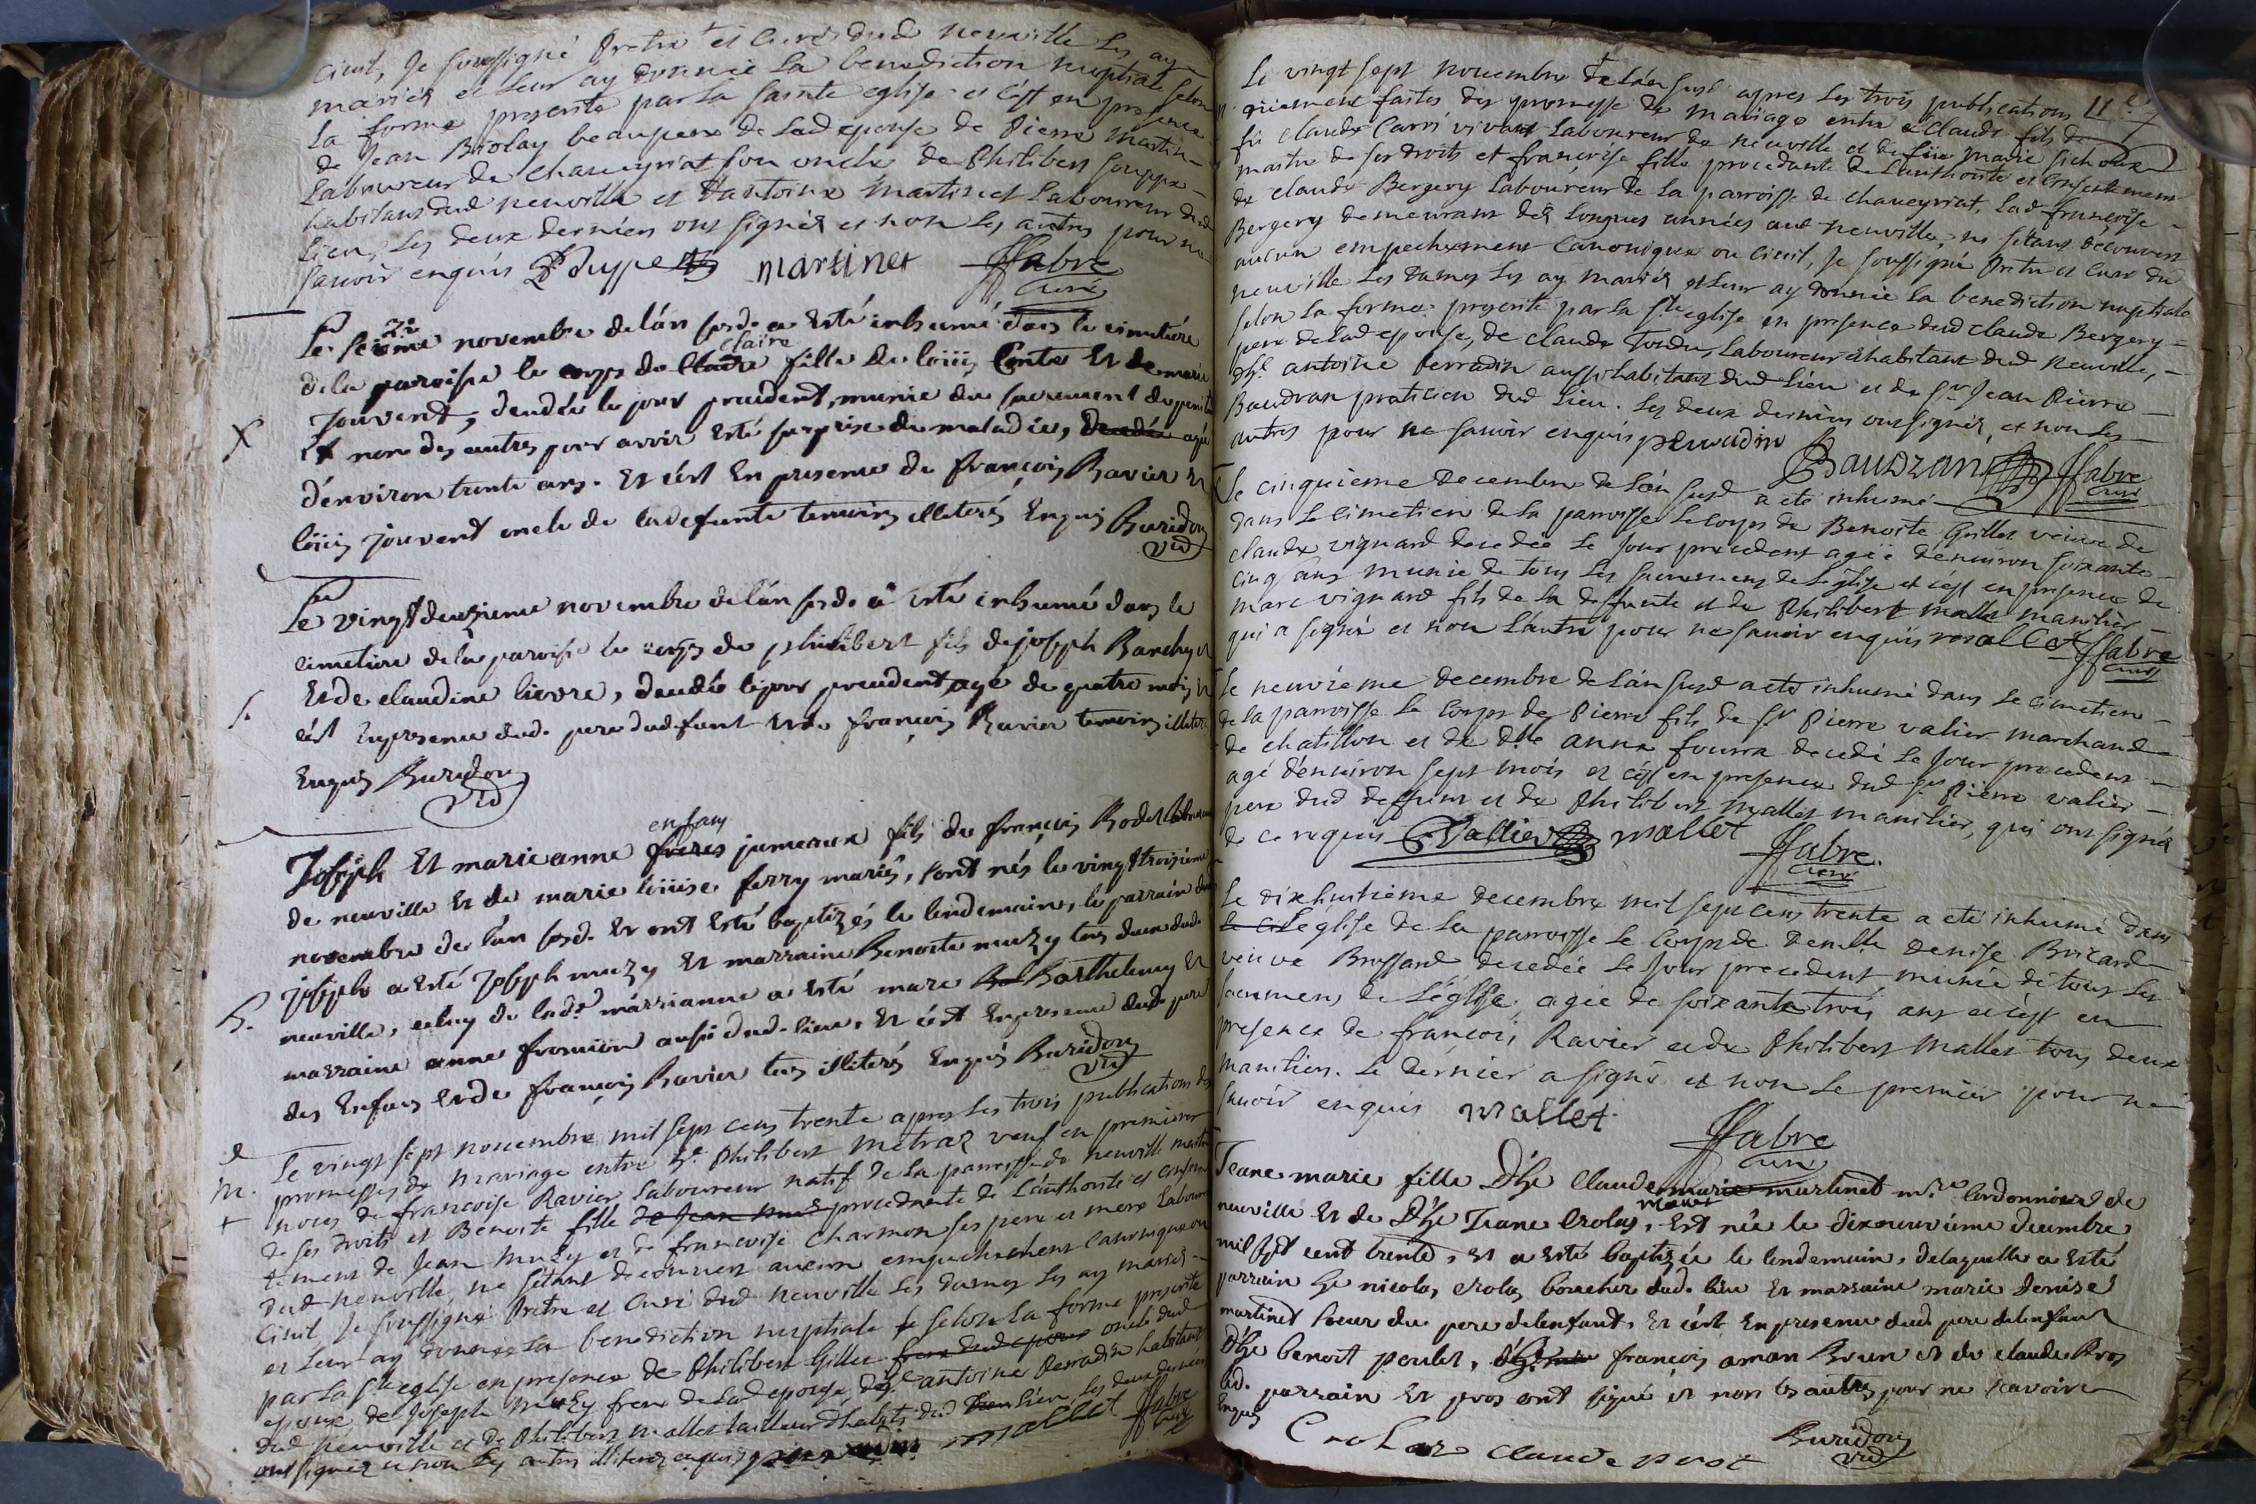 civil, Je soussigné Pretre et Curé dud neuville les ay
mariés et leur ay donnée la benediction nuptiale selon
la forme prescrite par la sainte eglise et c'est en presence
de Jean Biolay beaupere de lad epouse de Pierre Martin
Laboureur de chaveyriat son oncle de Philibert
habitans dud neuville et d'antoine Martinet Laboureur dud
lieu, les deux derniers ont signés et non les autres pour ne
savoir enquis martinet ffabre
Curé
Le novembre de l'an susd. a esté inhumé dans le cimetière
claire
de la paroisse le corps de fille de loüis Conte et de marie
X
Jouvent, decedée le jour precedent, munie du sacrement de penit
et non des autres pour avoir esté surprise de maladie, agée
d'environ trente ans. Et c'est En presence de françois Ravier et
loüis jouvent oncle de la defunte temoins illiterés Enquis Buridon
vic
Le vingt deuzieme novembre de l'an susd. a esté inhumé dans le
cimetiere de la paroisse le corps de philibert fils de joseph
Et de claudine lievre, decedé le jour precedent agé de quatre mois et
S.
c'est En presence dud. pere dud defunt et de françois Ravier temoins illiter
Enquis Buridon
vic
enfans
Joseph Et marie anne freres jumeaux fils de françois Rodet
de neuville Et de marie loüise ferry mariés, sont nés le vingt troisième
novembre de l'an susd. Et ont Esté baptizés le lendemain, le parrain dud
joseph a Esté Joseph muzy Et marraine Benoite muzy tous deux dud
B.
neuville, celuy de lad.e marrianne a esté marc Barthelemy Et
marraine anne fromion aussi dud. lieu, Et c'est En presence dud pere
des Enfans et de françois Ravier tous illiterés Enquis Buridon
vic
Le vingt sept novembre mil sept cens trente apres les trois publications des
M.
promesses de mariage entre Philibert Metraz veuf en premieres
+
noces de francoise Ravier laboureur natif de la paroisse de neuville maitre
de ses droits et Benoite fille de Jean procedante de l'authorité et consen
tement de Jean Muzy et de francoise Charmon ses pere et mere Labour
dud neuville, ne s'etant decouvert aucun empechement canonique ou
civil Je soussigné Pretre et Curé dud neuville les ay mariés
et leur ay donnée la benediction nuptiale selon la forme prescrite
par la ste eglise en presence de Philibert Gillet oncle dud
epoux de Joseph Muzy frere de lad epouse, antoine Perradin habitant
dud neuville et de Philibert mallet tailleur d'habits dud lieu, les deux derniers
ont signez et non les autres illiterez enquis mallet ffabre
Curé
Le vingt sept novembre de l'an susd apres les trois publications
faites des promesse de mariage entre Claude fils de
fü claude Carri vivant Laboureur de neuville et de füe marie
maitre de ses droits et francoise fille procedante de l'authorité et consentement
de claude Bergery Laboureur de la parroisse de chaveyriat, lad francoise
Bergery demeurant dès longues années aud neuville, ne s'etant decouvert
aucun empechement Canonique ou civil, Je soussigné Pretre et Curé dud
neuville les ay mariés et leur ay donnée la benediction nuptiale
selon la forme prescrite par la ste eglise en presence dud claude Bergery
pere de lad epouse, de claude Tondu Laboureur habitant dud neuville,
antoine Perradin aussi habitant dud lieu et de Sr Jean Pierre
Baudran praticien dud lieu. les deux derniers ont signés, et non les
autres pour ne savoir enquis perradin
Baudran ffabre
curé
Le cinquieme decembre de l'an susd a eté inhumé
dans le cimetiere de la parroisse le corps de Benoite Grillet veuve de
claude vignard decedée le jour precedent agée d'environ soixante
cinq ans munie de tous les sacremens de l'eglise et c'est en presence de
marc vignard fils de la deffunte et de Philibert mallet manilier
qui a signé et non l'autre pour ne savoir enquis mallet ffabre
curé
Le neuvieme decembre de l'an susd a eté inhumé dans le cimetiere
de la parroisse le corps de Pierre fils de Sr Pierre valier marchand
de chatillon et de dlle anne fourra decedé le jour precedent
agé d'environ sept mois et c'est en presence dud Sr Pierre valier
pere dud deffunt et de Philibert mallet manilier, qui ont signés
de ce requis Vallier mallet
ffabre.
curé
Le dixhuitieme decembre mil sept cens trente a eté inhumé dans
l'église de la parroisse le corps de demlle denise Bricard
veuve Brossard decedée le jour precedent munie de tous les
sacremens de l'église, agée de soixante trois ans et c'est en
presence de francois Ravier et de Philibert mallet tous deux
maniliers. Le dernier a signé et non le premier pour ne
savoir enquis mallet.
ffabre
curé
Jeane marie fille D'hle Claude martinet m.re Cordonnier de
neuville Et de D'hle Jeane Crolas, Est née le dixneuvième decembre
mil sept cent trente, Et a Esté baptizée le lendemain, de laquelle a esté
parrain nicolas Crolas boucher dud. lieu Et marraine marie denise
martinet soeur du pere de l'enfant, Et c'est En presence dud pere de l'enfant
D'hle benoit poulet, françois aman Brun et de claude Pros
led. parrain Et pros ont signé et non les autres pour ne sçavoir
Enquis
Crolas claude pros Buridon
vic